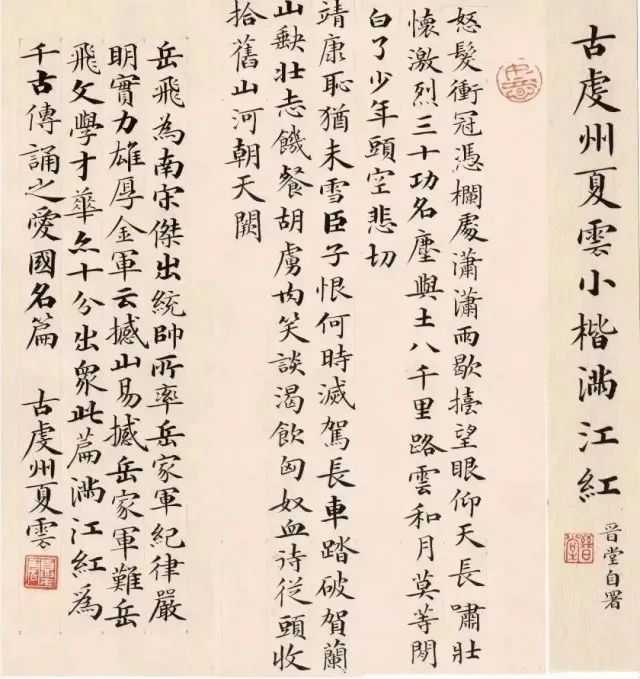 古虔州夏雲小楷滿江紅
晉堂自署
怒髮衝冠憑欄處瀟瀟雨歇擡望眼仰天長嘯壯
懷激烈三十功名塵與土八千里路雲和月莫等閒
白了少年頭空悲切
靖康恥猶未雪臣子恨何時滅駕長車踏破賀蘭
山缺壯志饑餐胡虜肉笑談渴飲匈奴血待從頭收
拾舊山河朝天闕
岳飛為南宋傑出統帥所率岳家軍紀律嚴
明實力雄厚金軍云撼山易撼岳家軍難岳
飛文學才華亦十分出衆此篇滿江紅為
千古傳誦之愛國名篇 古虔州夏雲